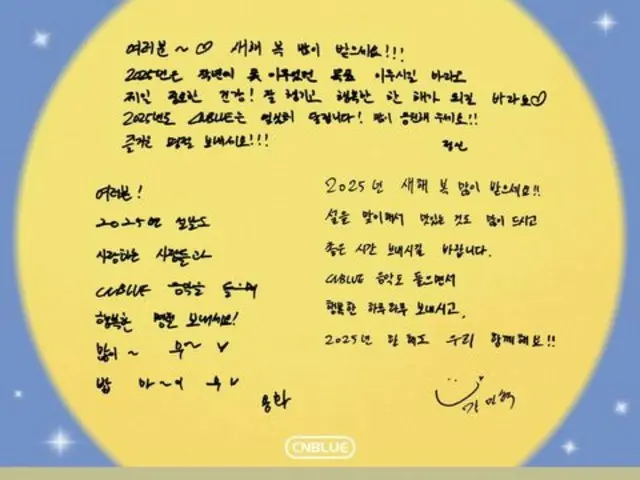 여러분~♡ 새해 복 많이 받으세요!!!
2025년은 작년에 못 이루었던 목표 이루시길 바라고
제일 중요한 건강! 잘 챙기고 행복한 한 해가 되길 바라요♡
2025년도 CNBLUE는 열심히 달립니다! 많이 응원해 주세요!!
즐거운 명절 보내세요!!!
정신
여러분!
2025년 설날도
사랑하는 사람들과
CNBLUE 음악을 들으며
행복한 명절 보내세요!
많이~
밥
용화
2025년 새해 복 많이 받으세요!!
설을 맞이해서 맛있는 것도 많이 드시고
좋은 시간 보내시길 바랍니다.
CNBLUE 음악도 들으면서
행복한 하루하루 보내시고,
2025년 한 해도 우리 함께해요!!
강민혁
CNBLUE